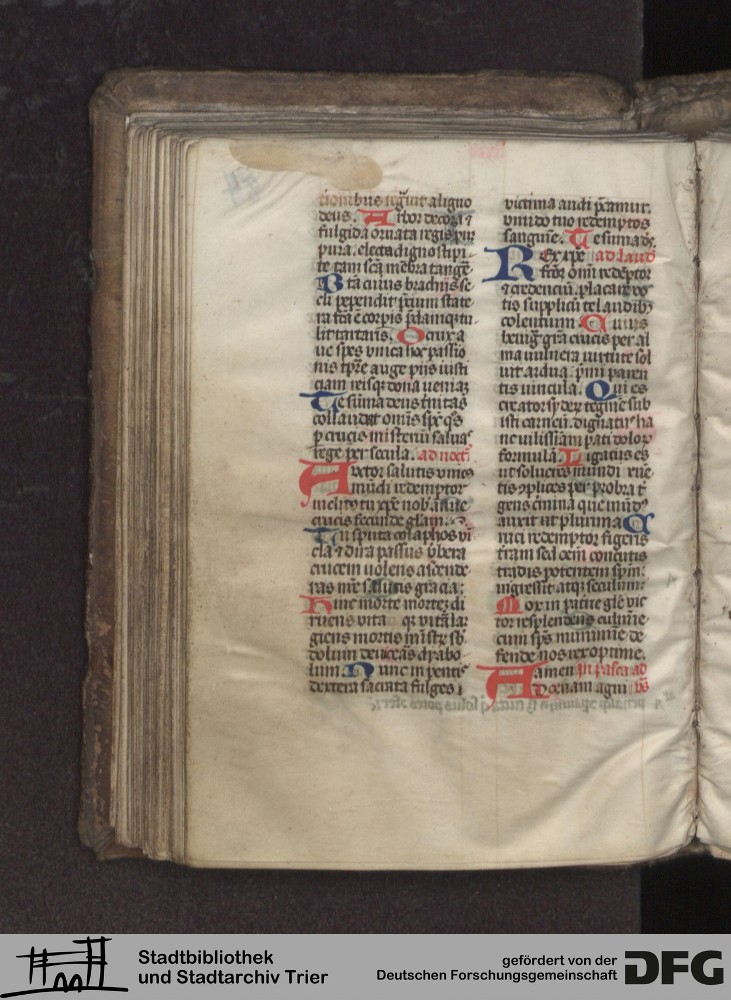 tionibus regnavit a ligno
deus. Arbor decora et
fulgida ornata regis pur
pura. electa digno stipi
te tam sca membra tange
Beata cuius brachiis se
cli pependit precium state
ra fca e corpis predamq; tu
lit tartaris. O crux a
ve spes unica hoc passio
nis tpre auge piis iusti
ciam reisq; dona veniaz
Te suma deus trinitas
collaudet omis spr qs
p crucis misterium salvas
rege per secula. ad noct
Auctor salutis unice
mundi redemptor
inclite tu xpe nob annue
crucis fecunde gliam.
Tu sputa colaphos vi
cla et dira passus vbera
crucem volens ascende
ras nre salutis gracia.
Hinc morte mortez di
ruens vita qz vitam lar
giens mortis mistrz sb
dolum deviceras dyabo
lum. Nunc in pentis
dextera sacrata fulges i
victima audi precamur.
vivido tuo redemptos
sanguine. Te suma ds
Rex xpe ad laud
fctor omi redeptor
et credencium. placare vo
tis supplicum te laudib;
colentium. Cuius
benig gra crucis per al
ma vulnera virtute sol
vit ardua. primi paren
tis vincula. Qui es
creator syderz tegme sub
isti carneum. dignatus ha
nc vilissiam pati dolorz
formulam. Ligatus es
ut solveres mundi rue
tis complices per probra t
gens crimina que mund9
auxit plurima. C
ruci redemptor figeris
terram sed oem concutis
tradis potentem spm.
nigrescit atq; seculum
Mox in patrne glie vic
tor resplendens culmine
cum sps munimine de
fende nos rex optime.
Amen In pasca ad
Ad cenam agni vs
Stadtbibliothek
und Stadtarchiv Trier
gefördert von der
Deutschen Forschungsgemeinschaft
DFG